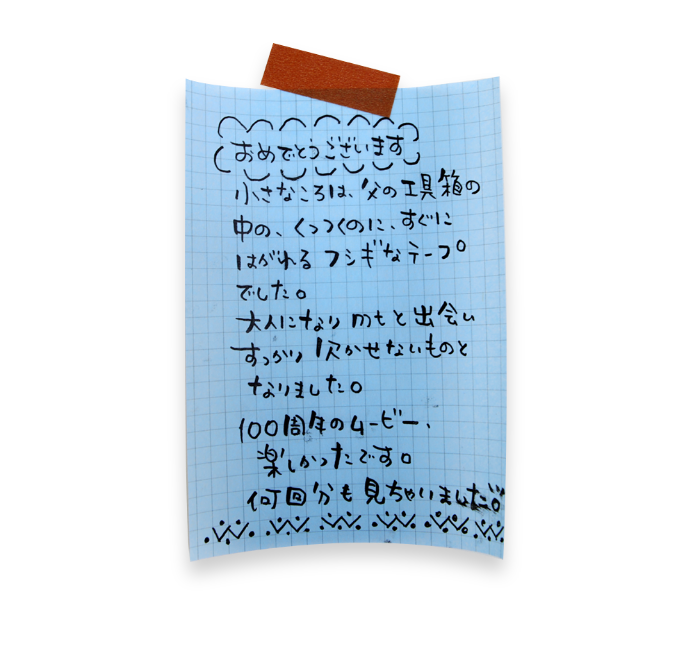 おめでとうございます
小さなころは、父の工具箱の
中の、くっつくのに、すぐに
はがれる フシギなテープ
でした。
大人になり mtと出会い
すっかり 欠かせないものと
なりました。
100周年のムービー、
楽しかったです。
何回分も見ちゃいました。